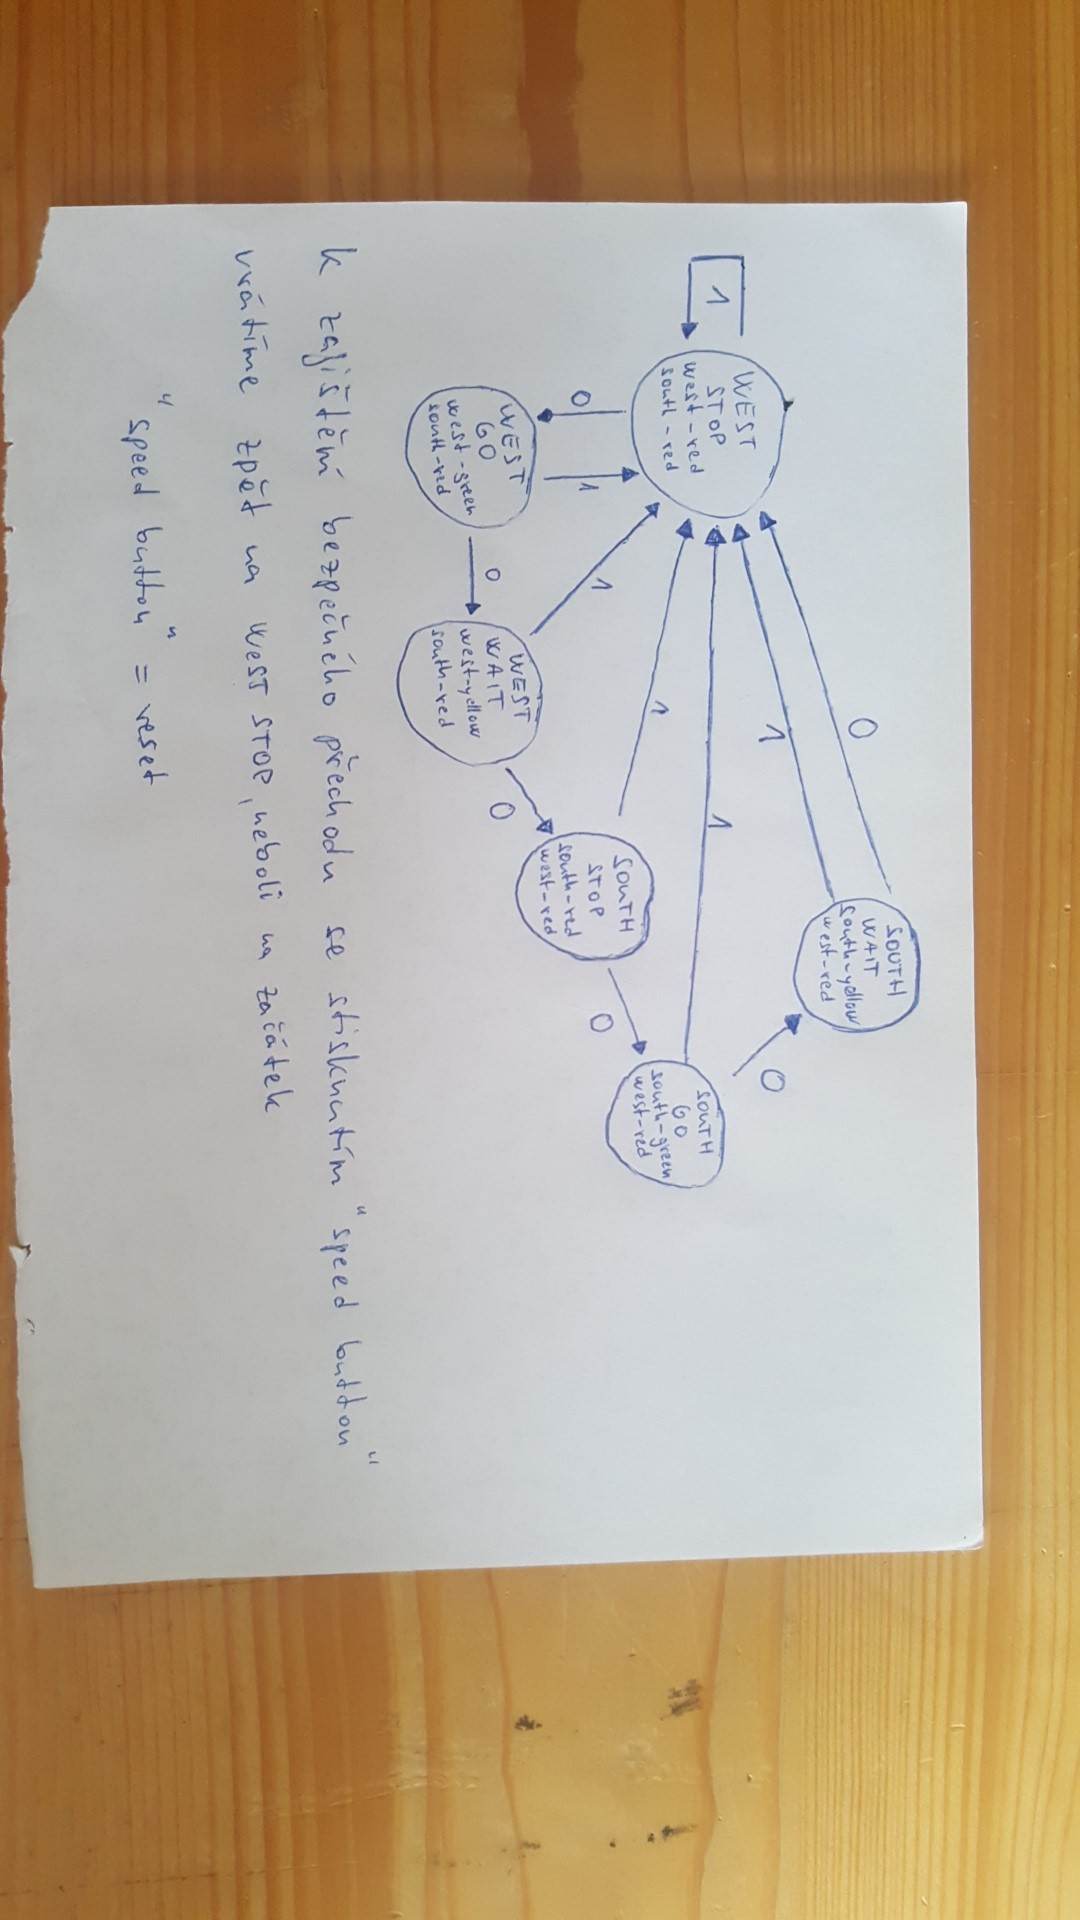 1
WEST
STOP
west-red
south-red
0
1
WEST
GO
west-green
south-red
0
WEST
WAIT
west-yellow
south-red
1
0
SOUTH
STOP
south-red
west-red
1
0
SOUTH
GO
south-green
west-red
1
0
SOUTH
WAIT
south-yellow
west-red
1
0
k zajištění bezpečného přechodu se stisknutím "speed button"
vrátíme zpět na WEST STOP, neboli na začátek
"speed button" = reset